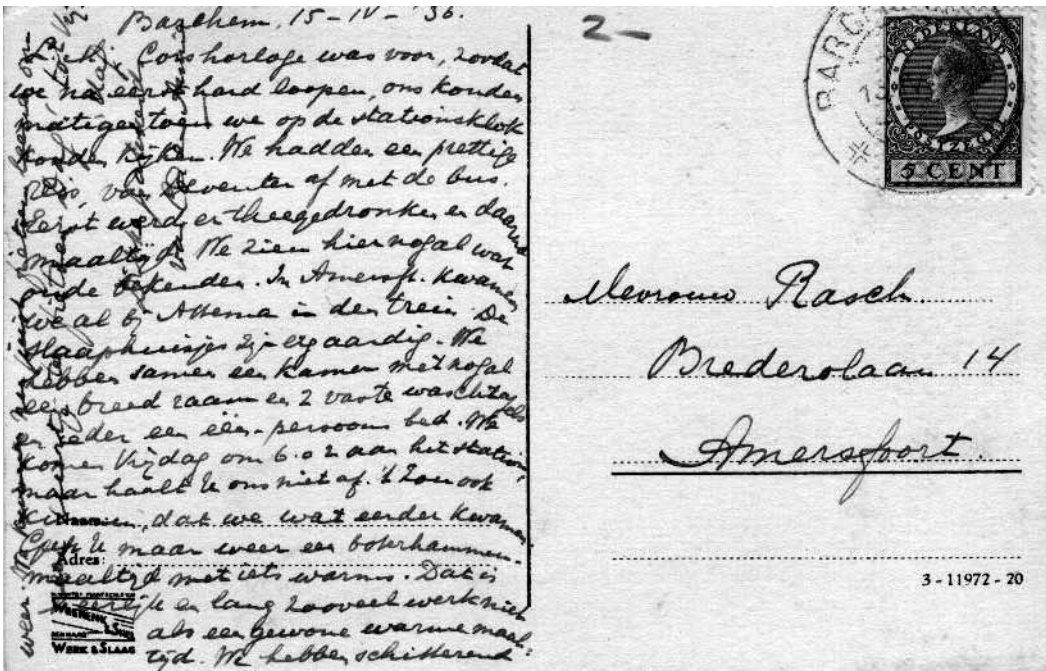 Barchem, 15-IV-'36.
Corshorloge was voor, zoodat
we na eerst hard loopen, ons konden
matigen toen we op de stationsklok
konden kijken. We hadden een prettige
reis, van Deventer af met de bus.
Eerst werd er theegedronken en daarna
maaltijd. We zien hier nogal wat
oude bekenden. In Amersft. kwamen
we al bij Attema in den trein. De
slaaphuisjes zijn erg aardig. We
hebben samen een kamer met nogal
een breed raam en 2 vaste waschtafels
en ieder een één-persoons bed. We
komen Vrijdag om 6.02 aan het station,
maar haalt U ons niet af. 't Zou ook
kunnen, dat we wat eerder kwamen.
Geeft U maar weer een boterhammen-
maaltijd met iets warms. Dat is
heerlijk en lang zooveel werk niet
als een gewone warme maal-
tijd. We hebben schitterend
weer.
Naam:
Adres:
WEENENK & SNEL
WERK & SLAAG
2-
BARCH
NEDERLAND
POSTZEGEL
5 CENT
Mevrouw Rasch
Brederolaan 14
Amersfoort.
3-11972-20